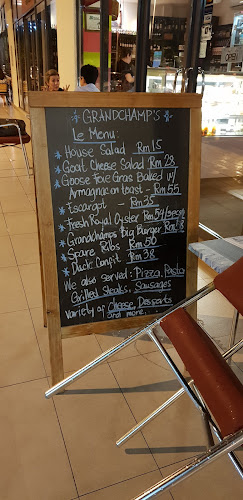 GRANDCHAMP'S
Le Menu:
House Salad Rm 15
Goat Cheese Salad Rm 28
Goose Foie Gras Baked w/
Armagnac on toast - Rm 55
Escargot - Rm 35
Fresh Royal Oyster Rm 54/
Grandchamps Big Burger Rm
Spare Ribs Rm 50
Duck Confit Rm 38
We also served: Pizza, Pasta
Grilled Steaks, Sausages
Variety of Cheese, Desserts
and more...
OPEN